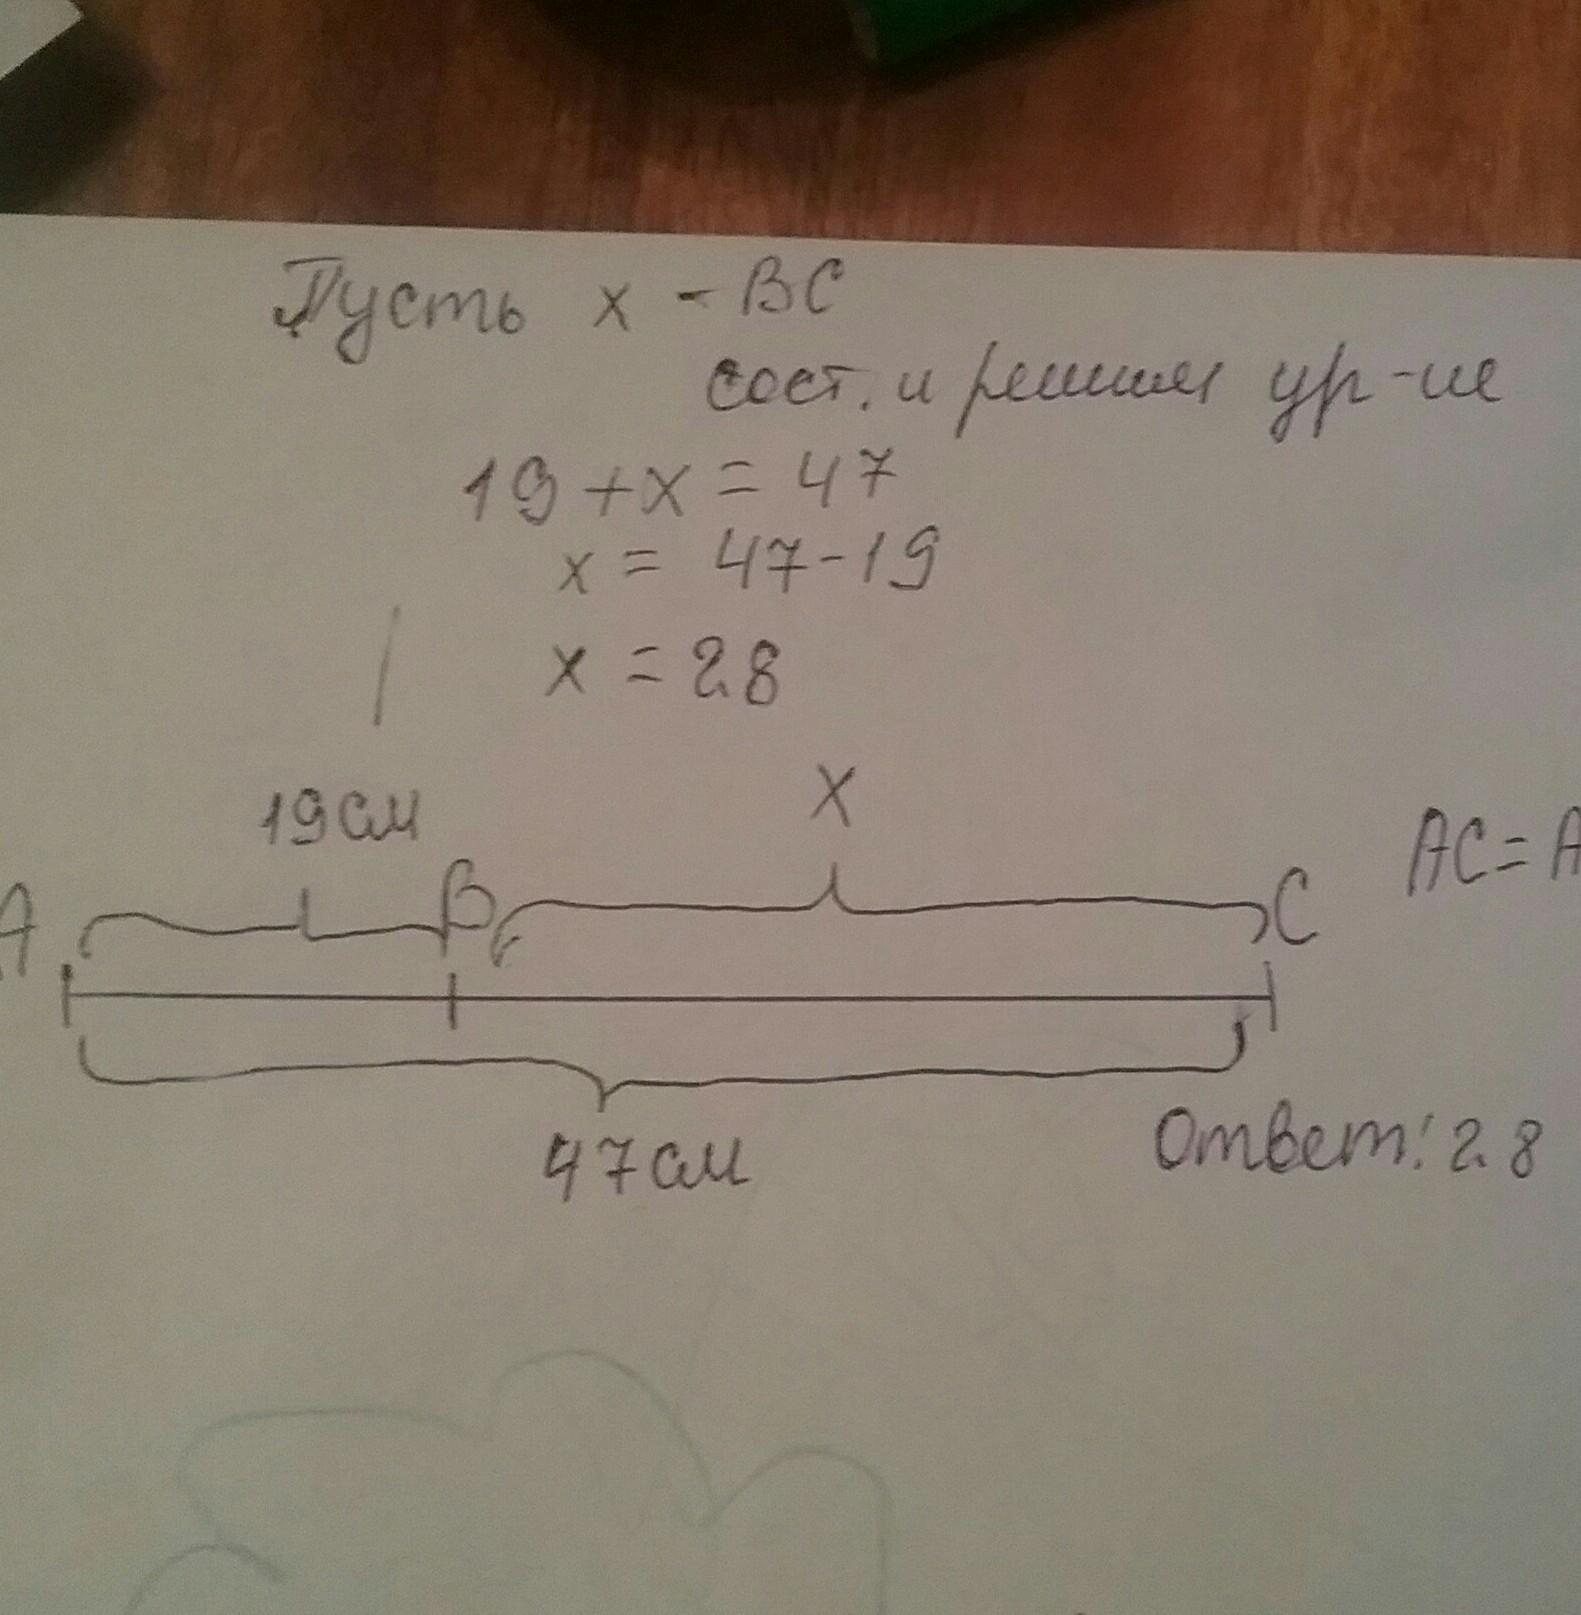 Пусть x - BC
сост. и решим ур-ие
19 + x = 47
x = 47 - 19
x = 28
19 см
x
A
B
C
AC = A
47 см
Ответ: 28